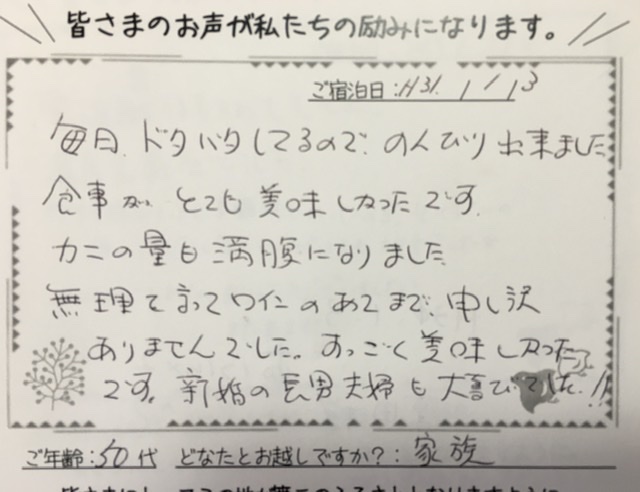 皆さまのお声が私たちの励みになります。
ご宿泊日:H31. 1/13
毎日、ドタバタしてるので、のんびり出来ました
食事が、とても美味しかったです。
カニの量も満腹になりました
無理て言ってワインのあてまで、申し訳
ありませんでした。すっごく美味しかった
です。新婚の長男夫婦も大喜びでした!!
ご年齢:50代 どなたとお越しですか?:家族